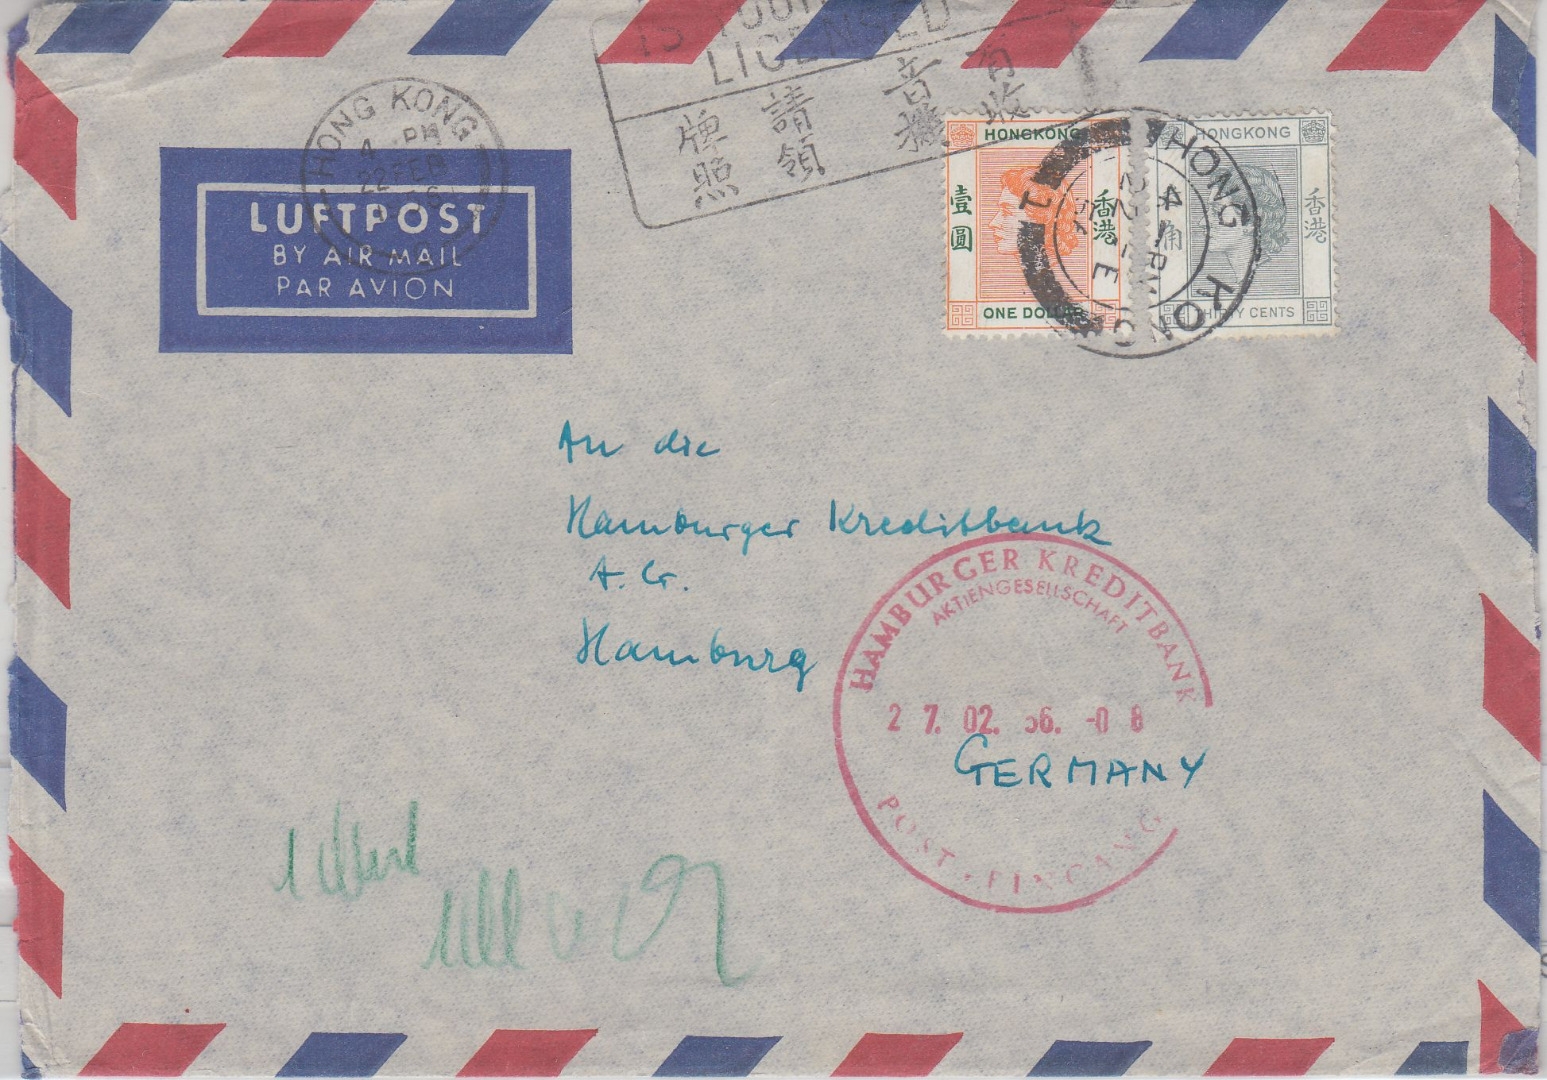 IS YOUR
LICENSED
有 音 請 牌
收 機 領 照
HONG KONG
4 PM
22 FEB
56
LUFTPOST
BY AIR MAIL
PAR AVION
HONGKONG
壹圓
香港
ONE DOLLAR
HONGKONG
角
香港
THIRTY CENTS
HONG KONG
1
An die
Hamburger Kreditbank
A.G.
Hamburg
GERMANY
HAMBURGER KREDITBANK
AKTIENGESELLSCHAFT
27. 02. 56. -08
POST-EINGANG